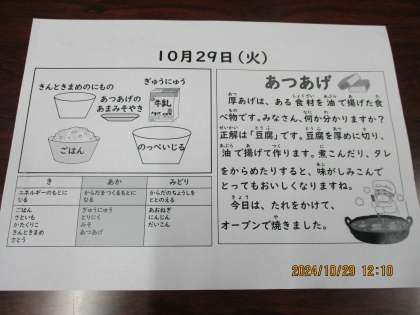 10月29日(火)
きんときまめのにもの
あつあげの
あまみそやき
ぎゅうにゅう
牛乳
ごはん
のっぺいじる
き
あか
みどり
エネルギーのもとに
なる
からだをつくるもとに
なる
からだのちょうしを
ととのえる
ごはん
さといも
かたくりこ
きんときまめ
さとう
ぎゅうにゅう
とりにく
みそ
あつあげ
あおねぎ
にんじん
だいこん
あつあげ
厚あげは、ある食材を油で揚げた食
べ物です。みなさん、何か分かりますか？
正解は「豆腐」です。豆腐を厚めに切り、
油で揚げて作ります。煮こんだり、タレ
をからめたりすると、味がしみこんで
とってもおいしくなりますね。
今日は、たれをかけて、
オーブンで焼きました。
2024/10/29 12:10